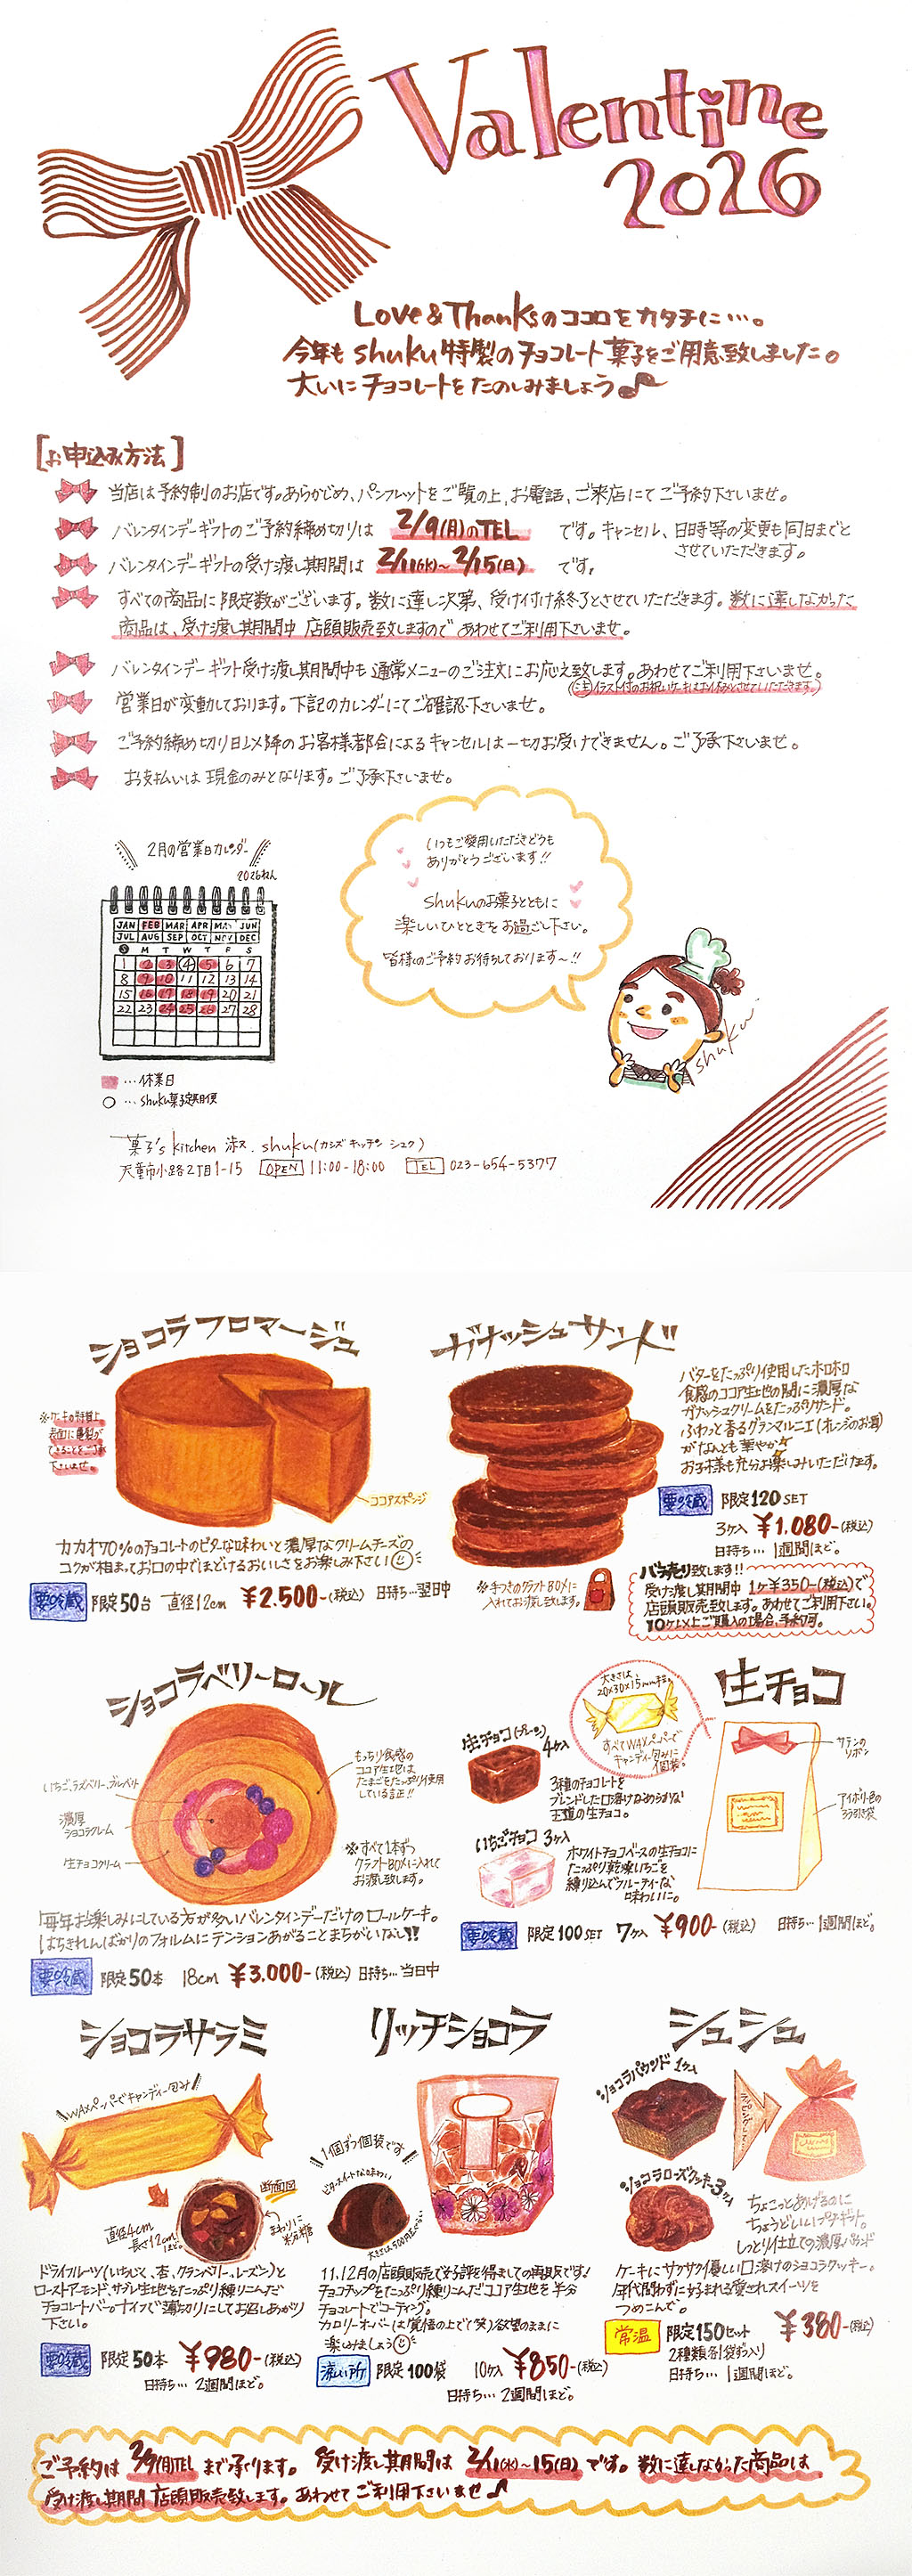 Valentine
2026
Love&Thanksのココロをカタチに…。
今年もshuku特製のチョコレート菓子をご用意致しました。
大いにチョコレートをたのしみましょう♪
[お申込み方法]
当店は予約制のお店です。あらかじめ、パンフレットをご覧の上、お電話、ご来店にてご予約下さいませ。
バレンタインデーギフトのご予約締め切りは 2/9(月)のTEL です。キャンセル、日時等の変更も同日までと
させていただきます。
バレンタインデーギフトの受け渡し期間は 2/11(水)~2/15(日) です。
すべての商品に限定数がございます。数に達し次第、受け付け終了とさせていただきます。数に達しなかった
商品は、受け渡し期間中 店頭販売致しますのであわせてご利用下さいませ。
バレンタインデーギフト受け渡し期間中も通常メニューのご注文にお応え致します。あわせてご利用下さいませ。
(注)イラスト付のお祝いケーキはお休みとさせていただきます。
営業日が変動しております。下記のカレンダーにてご確認下さいませ。
ご予約締め切り日以降のお客様都合によるキャンセルは一切お受けできません。ご了承下さいませ。
お支払いは現金のみとなります。ご了承下さいませ。
いつもご愛用いただきどうも
ありがとうございます!!
shukuのお菓子とともに
楽しいひとときをお過ごし下さい。
皆様のご予約お待ちしております～!!
shuku.
2月の営業日カレンダー
2026ねん
JAN FEB MAR APR MAY JUN
JUL AUG SEP OCT NOV DEC
S M T W T F S
1 2 3 4 5 6 7
8 9 10 11 12 13 14
15 16 17 18 19 20 21
22 23 24 25 26 27 28
…休業日
○…shuku菓子定期便
菓子's kitchen 淑. shuku(カシズ キッチン シュク)
天童市小路2丁目1-15 OPEN 11:00-18:00 TEL 023-654-5377
ショコラフロマージュ
※ケーキの特性上、
表面に亀裂が
できることをご了承
下さいませ。
ココアスポンジ
カカオ70%のチョコレートのビターな味わいと濃厚なクリームチーズの
コクが相まってお口の中でほどけるおいしさをお楽しみ下さい
要冷蔵 限定50台 直径12cm ¥2.500-(税込) 日持ち…翌日中
ガナッシュサンド
バターをたっぷり使用したホロホロ
食感のココア生地の間に濃厚な
ガナッシュクリームをたっぷりサンド。
ふわっと香るグランマルニエ(オレンジのお酒)
がなんとも華やか
お子様も充分お楽しみいただけます。
要冷蔵 限定120SET
3ヶ入 ¥1.080-(税込)
日持ち… 1週間ほど。
※手さげクラフトBOXに
入れてお渡し致します。
バラ売り致します!!
受け渡し期間中 1ケ¥350-(税込)で
店頭販売致します。あわせてご利用下さい。
10ケ以上ご購入の場合、予約可。
ショコラベリーロール
いちご、ラズベリー、ブルーベリー
濃厚
ショコラクレーム
生チョコクリーム
もっちり食感の
ココア生地は
たまごをたっぷり使用
している証!!
※すべて1本ずつ
クラフトBOXに入れて
お渡し致します。
毎年お楽しみにしている方が多いバレンタインデーだけのロールケーキ。
はちきれんばかりのフォルムにテンションあがることまちがいなし!!
要冷蔵 限定50本 18cm ¥3.000-(税込) 日持ち…当日中
生チョコ
大きさは、
20×30×15mm程。
すべてWAXペーパーで
キャンディー包みに
個装。
生チョコ(プレーン) 4ヶ入
3種のチョコレートを
ブレンドした口溶けなめらかな
王道の生チョコ。
いちごチョコ 3ヶ入
ホワイトチョコベースの生チョコに
たっぷり乾燥いちごを
練り込んでフルーティーな
味わいに。
サテンの
リボン
アイボリー色の
3つ引き袋
要冷蔵 限定100SET 7ヶ入 ¥900-(税込) 日持ち…1週間ほど。
ショコラサラミ
WAXペーパーでキャンディー包み
断面図
直径4cm
長さ12cm
ほど。
まわりに
粉糖
ドライフルーツ(いちじく、杏、クランベリー、レーズン)と
ローストアーモンド、サブレ生地をたっぷり練りこんだ
チョコレートバー。ナイフで薄切りにしてお召しあがり
下さい。
要冷蔵 限定50本 ¥980-(税込)
日持ち… 2週間ほど。
リッチショコラ
1個ずつ個装です
ビタースイートな味わい
大きさは500円玉くらい
11、12月の店頭販売で好評を得ましての再販です!
チョコチップをたっぷり練りこんだココア生地を半分
チョコレートでコーティング。
カロリーオーバーは覚悟の上で(笑)欲望のままに
楽しみましょう
涼しい所 限定100袋 10ヶ入 ¥850-(税込)
日持ち… 2週間ほど。
シュシュ
ショコラパウンド 1ヶ入
ショコラローズクッキー3ヶ入
ちょこっとあげるのに
ちょうどいいプチギフト。
しっとり仕立ての濃厚パウンド
ケーキにサクサク優しい口溶けのショコラクッキー。
年代問わずに好まれる愛されスイーツを
つめこんで。
常温 限定150セット ¥380-(税込)
2種類各1袋ずつ入り
日持ち… 1週間ほど。
ご予約は 2/9(月)TEL まで承ります。 受け渡し期間は 2/11(水)~15(日)です。 数に達しなかった商品は
受け渡し期間 店頭販売致します。あわせてご利用下さいませ♪